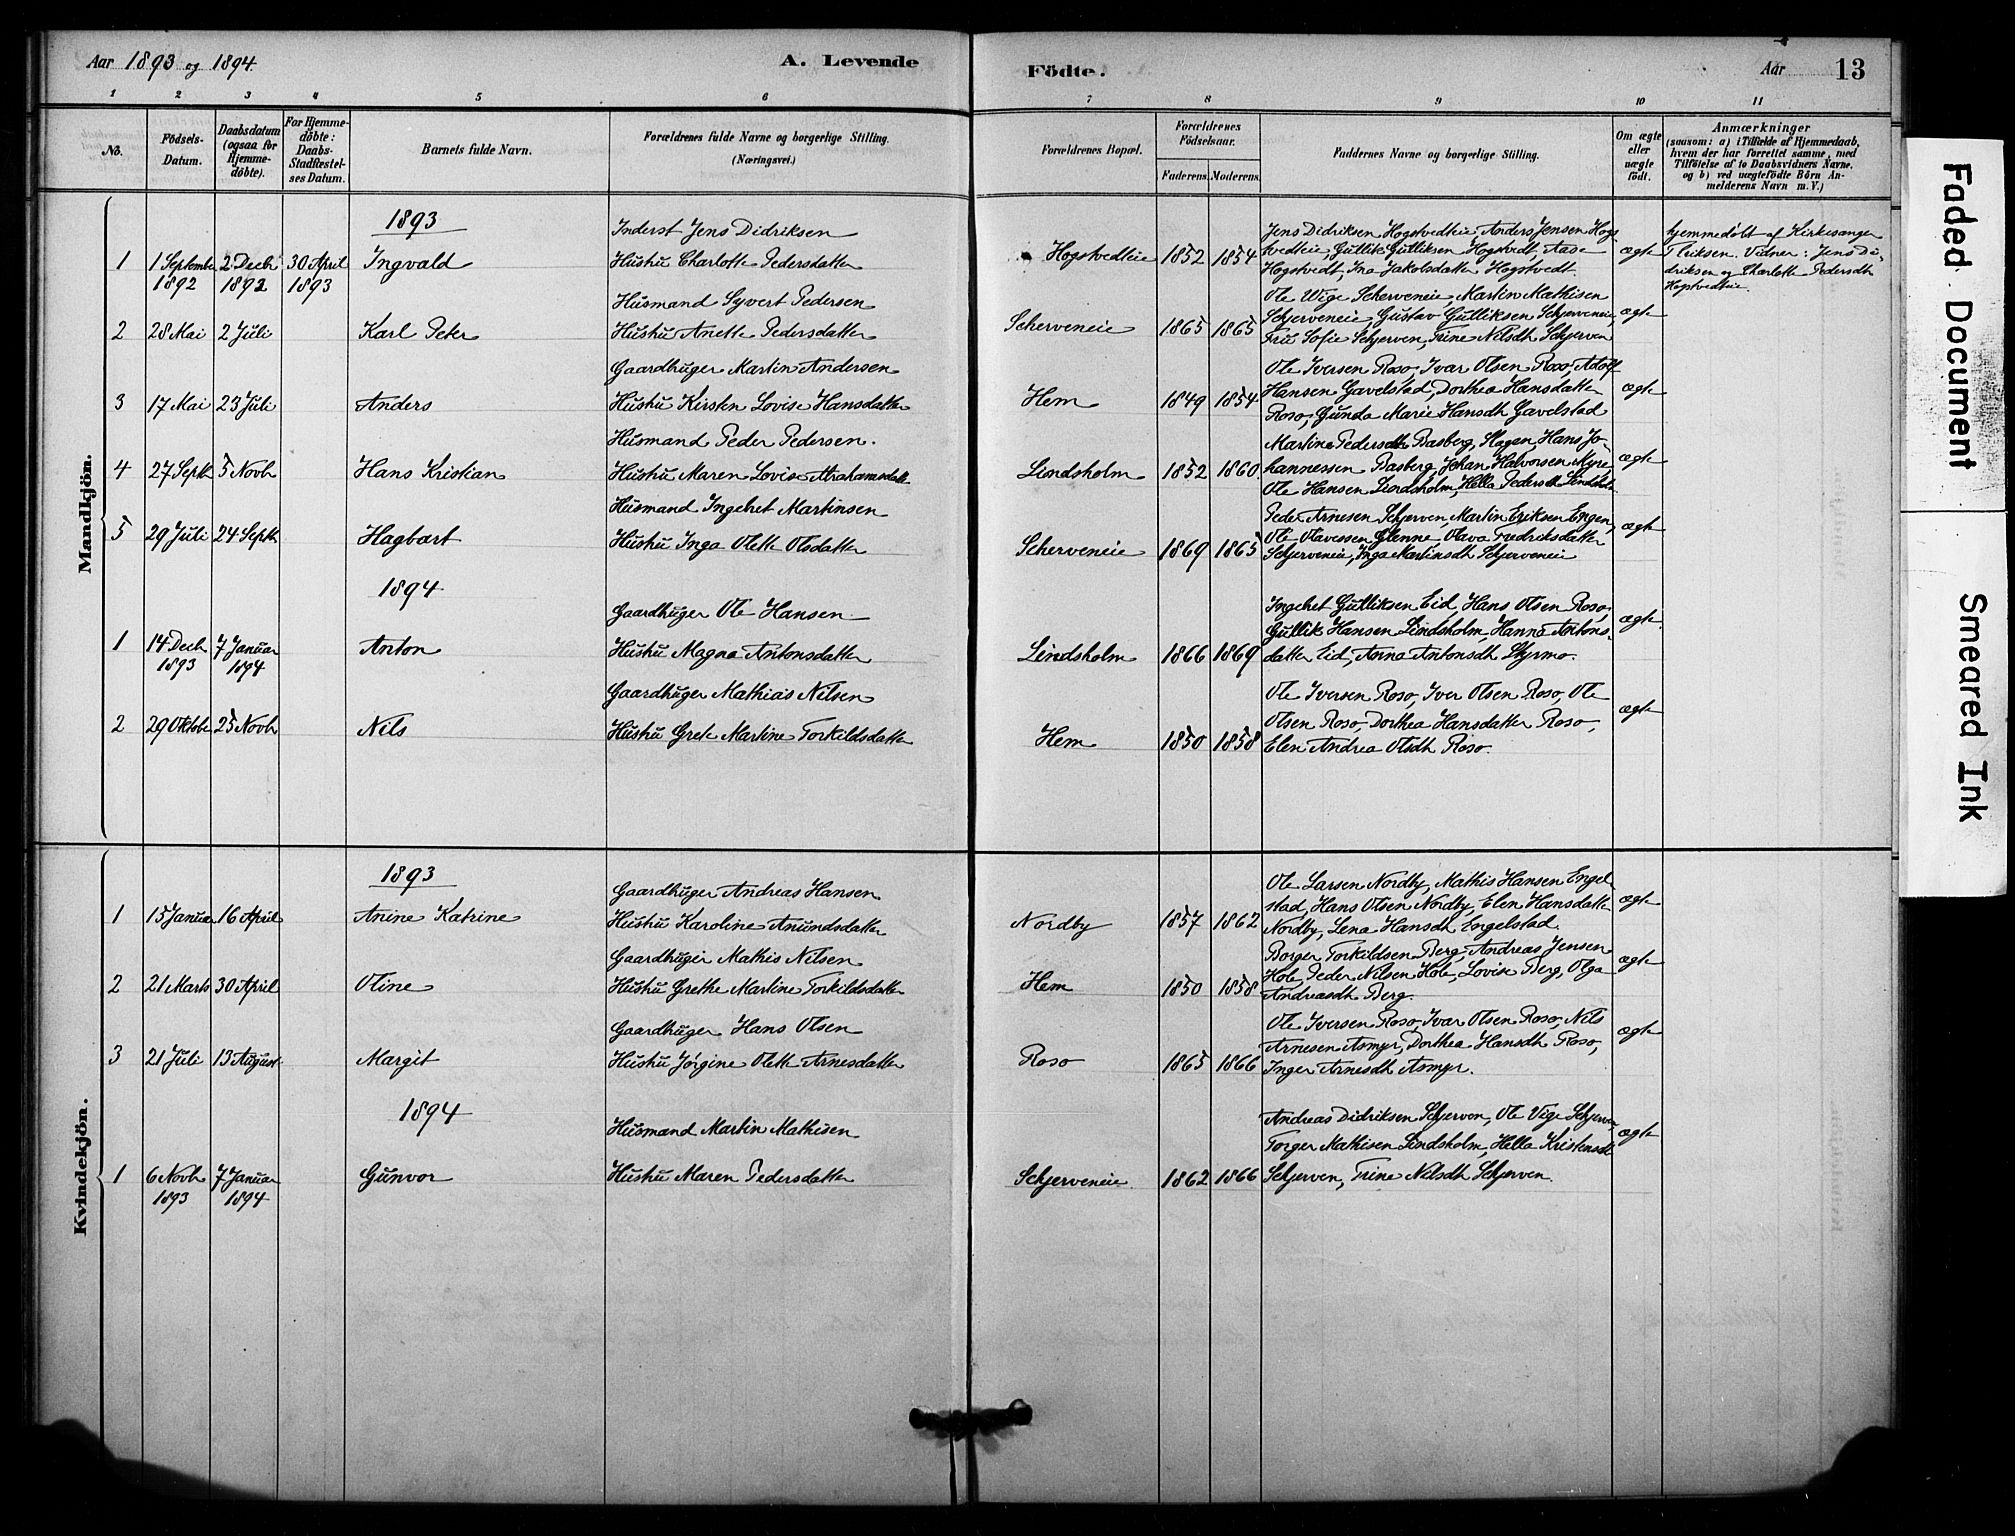 Aar 1893 og 1894.
A. Levende
Födte.
Aar
13
1 2 3 4 5 6 7 8 9 10 11
No.
Födsels-Datum.
Daabsdatum (ogsaa for Hjemme-döbte).
For Hjemme-döbte: Daabs-Stadfæstel-ses Datum.
Barnets fulde Navn.
Forældrenes fulde Navne og borgerlige Stilling. (Næringsvei.)
Forældrenes Bopæl.
Forældrenes Födselsaar.
Faderens. Moderens.
Faddernes Navne og borgerlige Stilling.
Om ægte eller uægte födt.
Anmærkninger
(saasom: a) i Tilfælde af Hjemmedaab, hvem der har forrettet samme, med Tilföielse af to Daabsvidners Navne, og b) ved uægtefödte Börn Anmelderens Navn m. V.)
Mandkjön.
1893
1
1 Septembr 1892
2 Decbr 1892
30 April 1893
Ingvald
Inderst Jens Didriksen
Hustru Charlotte Pedersdatter
Hogstvedteie
1852
1854
Jens Didriksen Hogstvedteie, Anders Jensen Hogst
vedteie, Gullik Gulliksen Hogstvedt, Aase
Hogstvedt, Ina Jakobsdatter Hogstvedt.
ægte
hjemmedöbt af Kirkesanger
Eliksen. Vidner: Jens Di-
driksen og Charlotte Pedersdt
Hogstvedteie.
2
28 Mai
2 Juli
Karl Peter
Husmand Syvert Pedersen
Hustru Anette Pedersdatter
Scherveneie
1865
1865
Ole Vige Scherveneie, Martin Mathisen
Schjerveneie, Gustav Gulliksen Schjerveneie,
Fru Sofie Schjerven, Trine Nilsdtr Schjerven
ægte
3
17 Mai
23 Juli
Anders
Gaardbruger Martin Andersen
Hustru Kirsten Lovise Hansdatter
Hem
1849
1854
Ole Iversen Roso, Ivar Olsen Roso, Adolf
Hansen Gavelstad, Dorthea Hansdatter
Roso, Gunda Marie Hansdtr Gavelstad
ægte
4
27 Septbr
5 Novbr
Hans Kristian
Husmand Peder Pedersen.
Hustru Maren Lovise Abrahamsdatter
Lindsholm
1852
1860
Martine Pedersdtr Basberg, Slagen, Hans Jo-
hannessen Basberg, Johan Halvorsen Myre,
Ole Hansen Lindsholm, Hella Pedersdtr Lindsholm
ægte
5
29 Juli
24 Septbr
Hagbart
Husmand Ingebret Martinsen
Hustru Inga Olette Olsdatter
Scherveneie
1869
1865
Peder Arnesen Schjerven, Martin Eriksen Engen,
Ole Olavessen Glenne, Olava Fredriksdatter
Schjerveneie, Inga Martinsdtr Schjerveneie
ægte
1894
1
14 Decbr 1893
7 Januar 1894
Anton
Gaardbruger Ole Hansen
Hustru Magna Antonsdatter
Lindsholm
1866
1869
Ingebret Gulliksen Eid, Hans Olsen Roso,
Gullik Hansen Lindsholm, Hanna Antons-
datter Eid, Anna Antonsdtr Styrmo.
ægte
2
29 Oktobr
25 Novbr
Nils
Gaardbruger Mathias Nilsen
Hustru Grete Martine Torkildsdatter
Hem
1850
1858
Ole Iversen Roso, Iver Olsen Roso, Ole
Olsen Roso, Dorthea Hansdatter Roso,
Elen Andrea Olsdtr Roso.
ægte
Kvindekjön.
1893
1
15 Januar
16 April
Anine Katrine
Gaardbruger Andreas Hansen
Hustru Karoline Anundsdatter
Nordby
1857
1862
Ole Larsen Nordby, Mathis Hansen Engel
stad, Hans Olsen Nordby, Elen Hansdatter
Nordby, Lena Hansdtr Engelstad.
ægte
2
21 Marts
30 April
Oline
Gaardbruger Mathis Nilsen
Hustru Grethe Martine Torkildsdatter
Hem
1850
1858
Borger Torkildsen Berg, Andreas Jensen
Hole, Peder Nilsen Hole, Lovise Berg, Olga
Andreasdtr Berg.
ægte
3
21 Juli
13 August
Margit
Gaardbruger Hans Olsen
Hustru Jörgine Olette Arnesdatter
Roso
1865
1866
Ole Iversen Roso, Ivar Olsen Roso, Nils
Arnesen Asmyr, Dorthea Hansdtr Roso,
Inger Arnesdtr Asmyr.
ægte
1894
1
6 Novbr 1893
7 Januar 1894
Gunvor
Husmand Martin Mathisen
Hustru Maren Pedersdatter
Schjerveneie
1862
1866
Andreas Didriksen Schjerven, Ole Vige Schjerven,
Torger Mathisen Lindsholm, Hella Kristensdt
Schjerven, Trine Nilsdtr Schjerven.
ægte
Faded Document
Smeared Ink